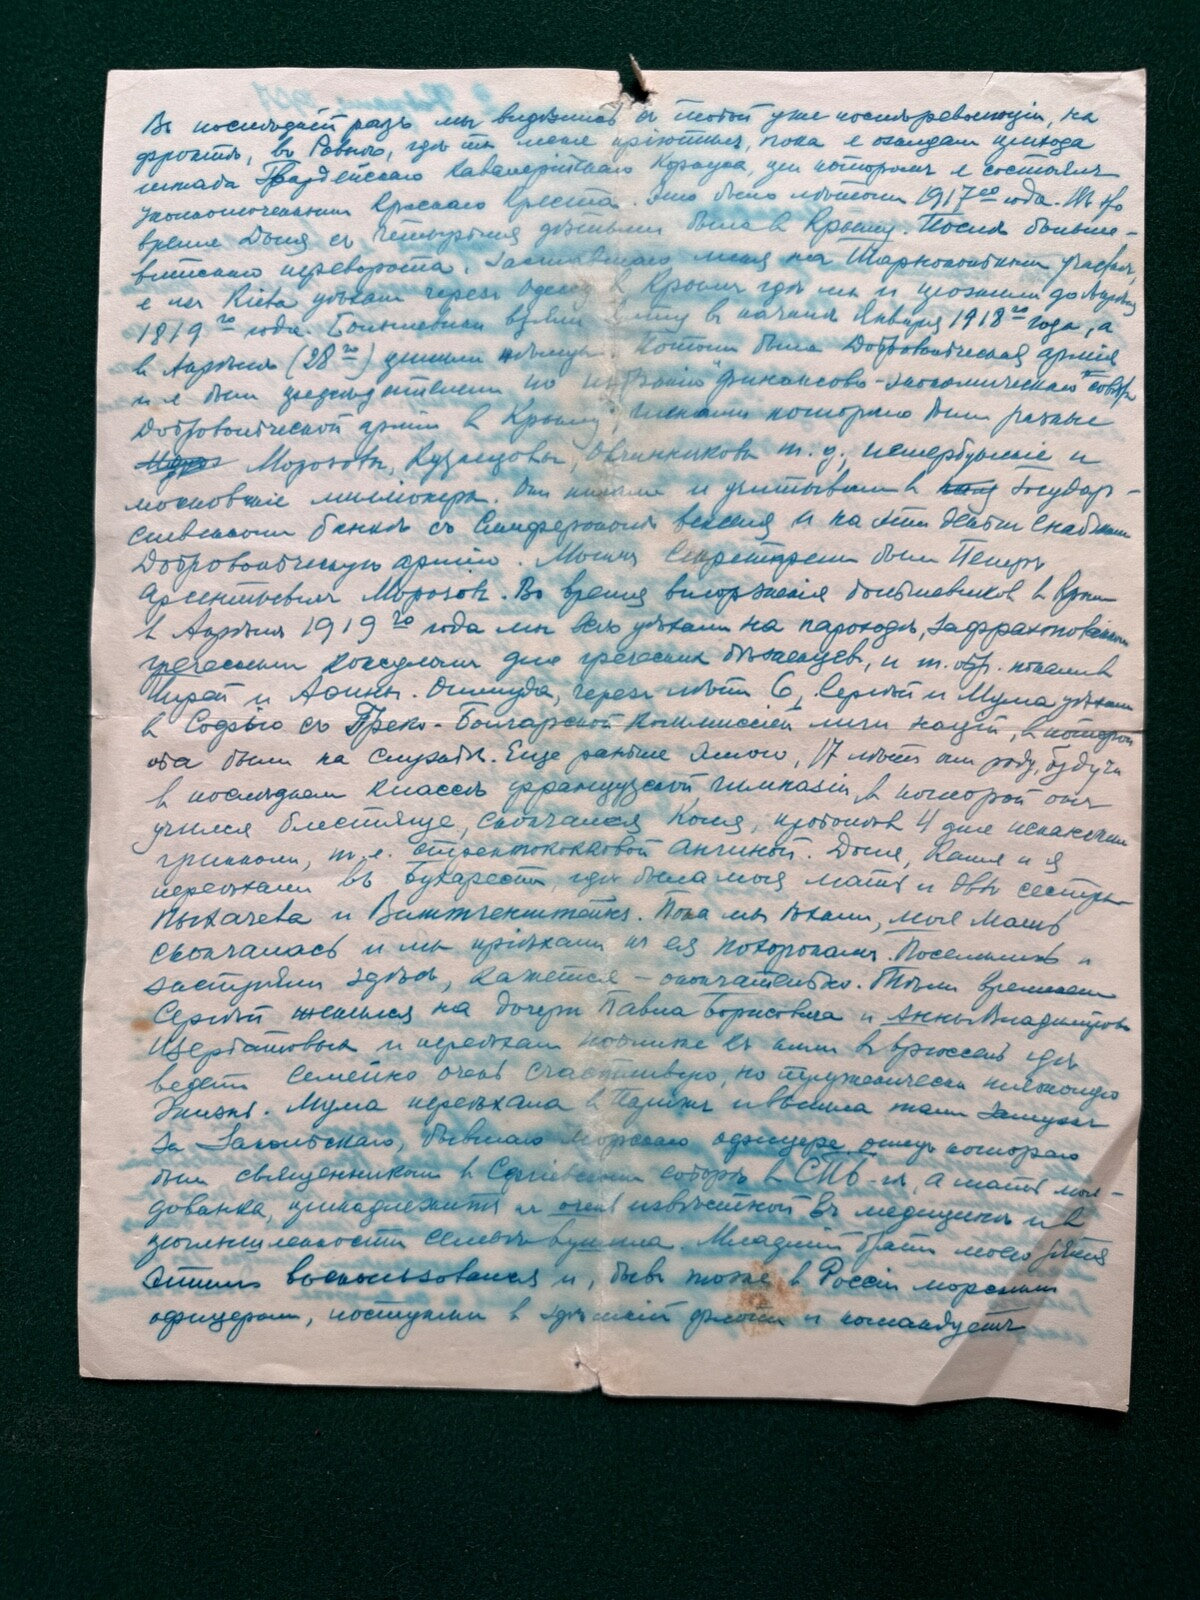 Въ послѣдній разъ мы видѣлись съ тобой уже послѣ революціи, на
фронтѣ, въ Ровно, гдѣ ты меня пріютилъ, пока я ожидалъ прихода
штаба Гвардейскаго Кавалерійскаго Корпуса, при которомъ я состоялъ
уполномоченнымъ Краснаго Креста. Это было лѣтомъ 1917го года. Въ это
время Доля съ четырьмя дѣтьми была в Крыму. Послѣ больше-
витскаго переворота, заставшаго меня на Тарнопольскомъ участкѣ,
я изъ Кіева уѣхалъ черезъ Одессу в Крымъ гдѣ мы и прожили до Апрѣля
1819го года. Большевики взяли Ялту в началѣ Января 1918го года, а
в Апрѣлѣ (28го) пришли нѣмцы. Потомъ была Добровольческая армія
и я былъ предсѣдателемъ по "финансово-экономическаго" совѣта
Добровольческой арміи в Крыму, членами котораго были разные
Морозовы, Кузнецовы, Овчинниковы т. д., петербургскіе и
московскіе милліонеры. Они писали и учитывали в Государ-
ственномъ банкѣ въ Симферополѣ векселя и на эти деньги снабжали
Добровольческую армію. Моимъ Секретаремъ былъ Петръ
Арсентьевичъ Морозовъ. Во время вторженія большевиковъ в Крымъ
в Апрѣлѣ 1919го года мы всѣ уѣхали на пароходѣ, зафрахтованномъ
греческимъ консуломъ для греческихъ бѣженцевъ, и т. обр. попали в
Пирей и Афины. Оттуда, черезъ лѣтъ 6, Сергѣй и Мума уѣхали
в Софію съ Греко-Болгарской Коммиссіей лиги націй, в которой
оба были на службѣ. Еще раньше этого, 17 лѣтъ отъ роду, будучи
в послѣднемъ классѣ французской гимназіи, в которой онъ
учился блестяще, скончался Коля, проболѣвъ 4 дня
гриппомъ, т. е. стрептококковой ангиной. Доля, Катя и я
переѣхали въ Бухарестъ, гдѣ была моя мать и двѣ сестры
Пыхачева и Витгенштейнъ. Пока мы ѣхали, моя мать
скончалась и мы пріѣхали къ ея похоронамъ. Поселились и
застряли здѣсь, кажется – окончательно. Тѣмъ временемъ
Сергѣй женился на дочери Павла Борисовича и Анны Владиміровны
Щербатовыхъ и переѣхалъ поближе къ нимъ в Брюссель гдѣ
ведетъ семейно очень счастливую, но труженически тяжелую
жизнь. Мума переѣхала в Парижъ и вышла тамъ замужъ
за Закольскаго, бывшаго морского офицера отецъ котораго
былъ священникомъ в Сергіевскомъ соборѣ в СПБ-гѣ, а мать мол-
дованка, принадлежитъ къ очень извѣстной въ медицинѣ и в
промышленности семьѣ. Младшій братъ моего зятя
этимъ воспользовался и, бывъ тоже в Россіи морскимъ
офицеромъ, поступилъ в здѣшній флотъ и командуетъ